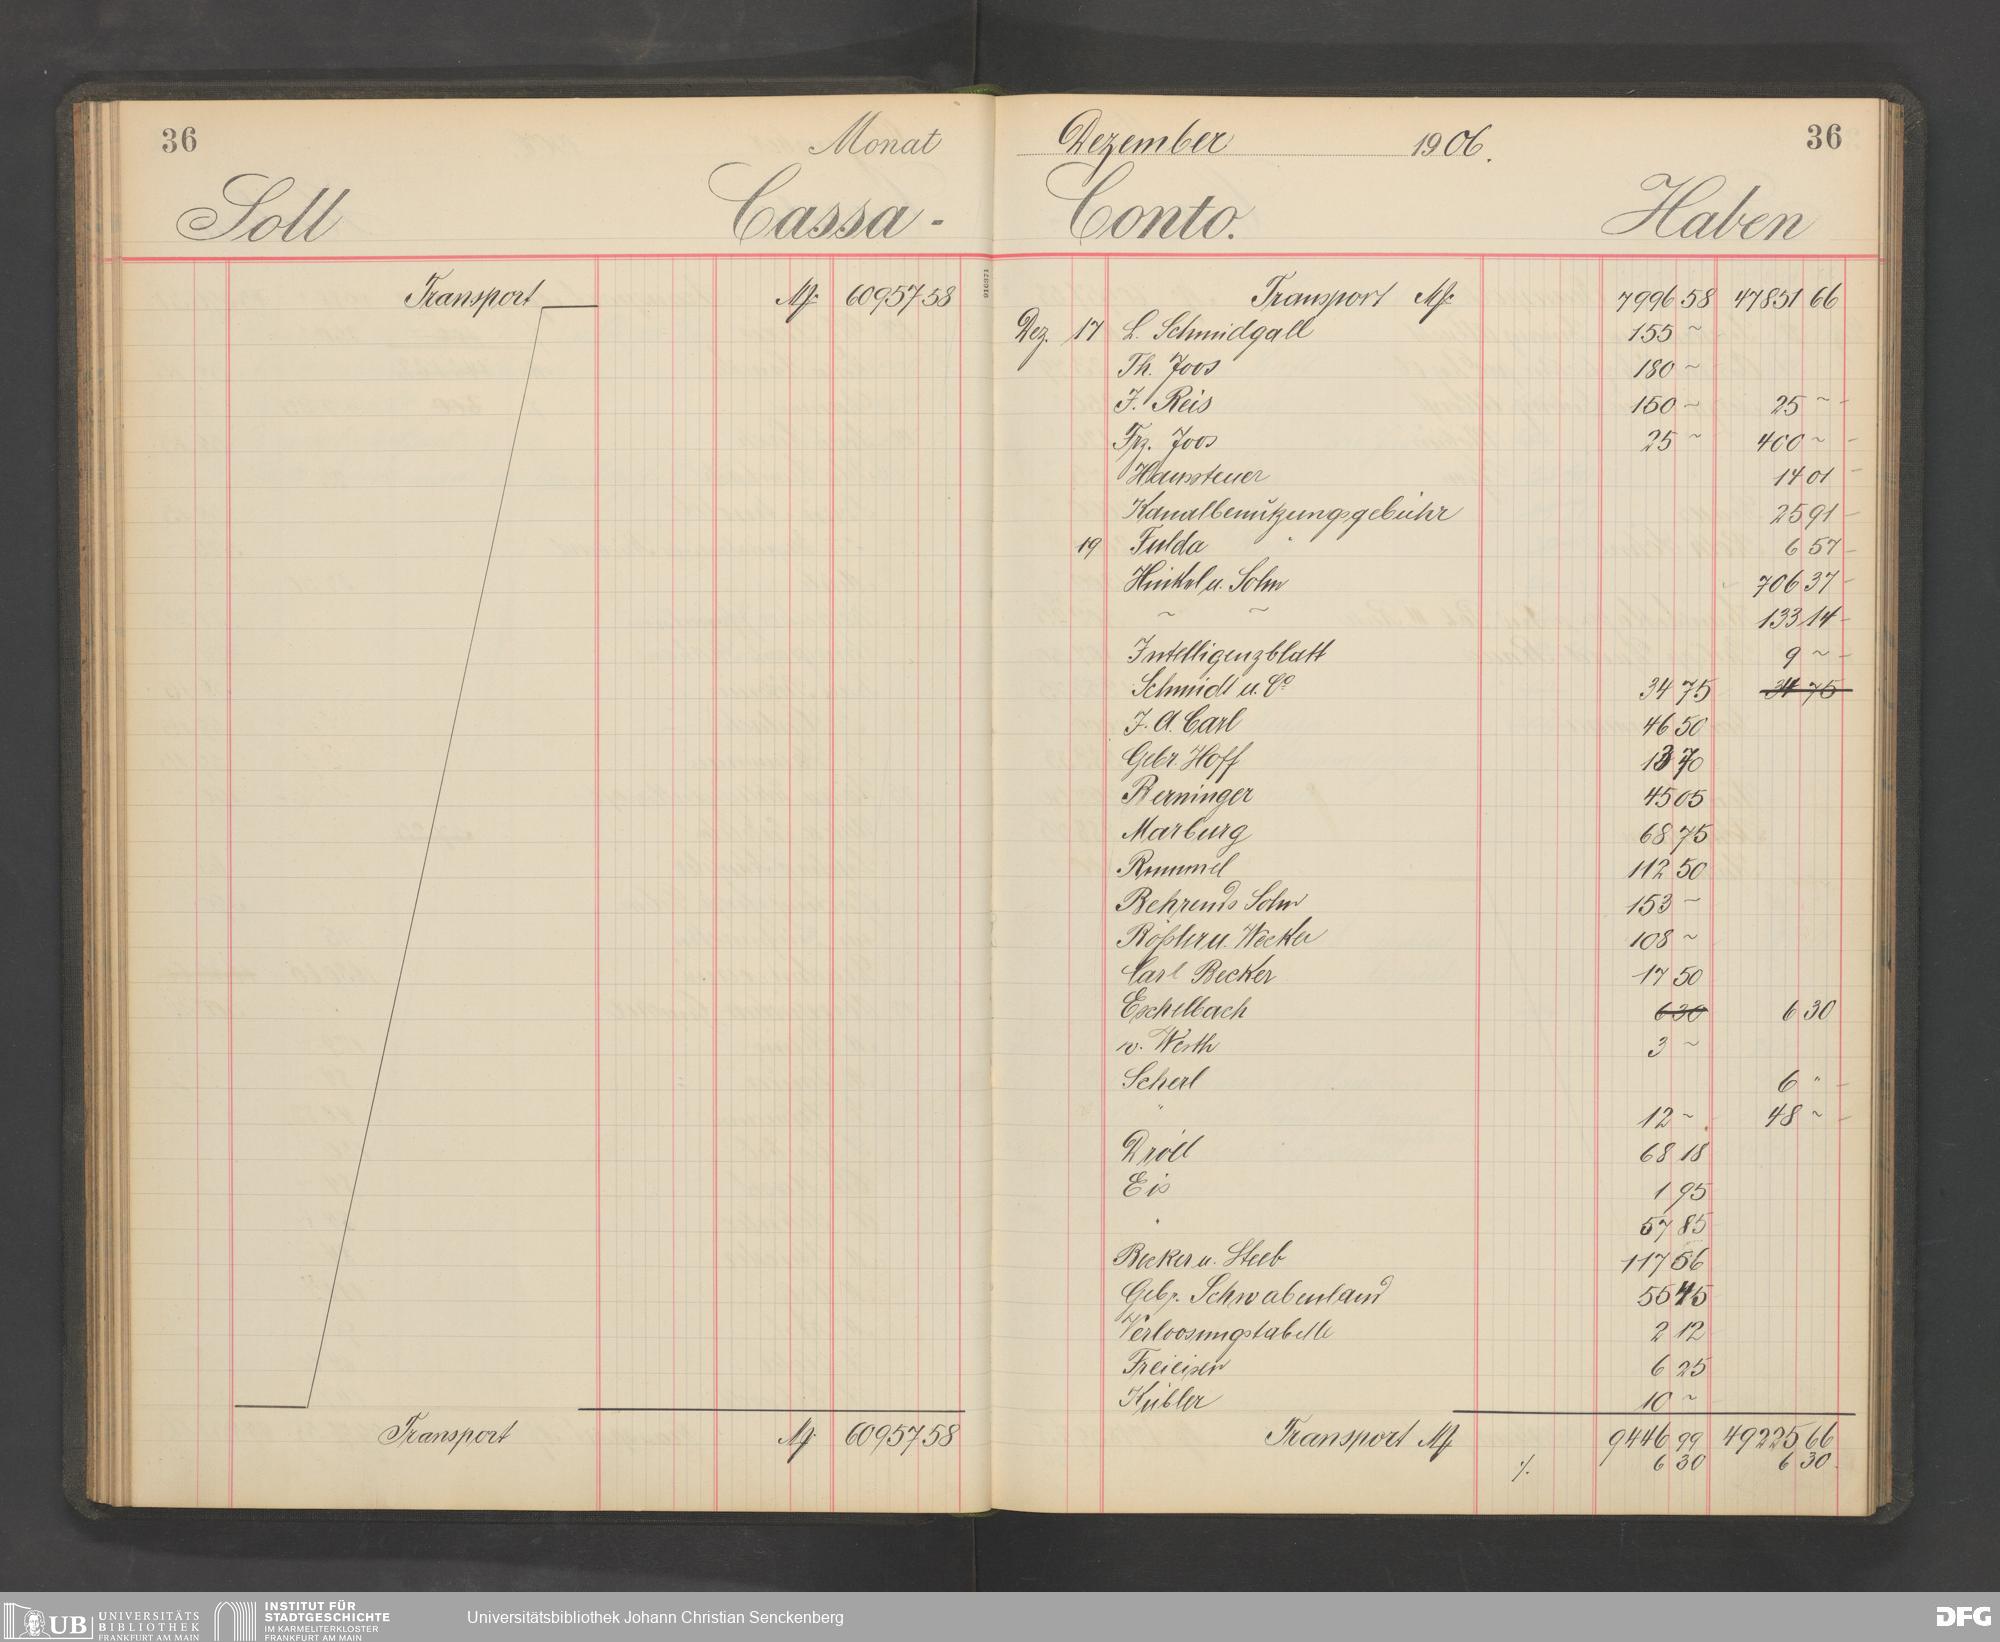 36
Monat
Soll
Cassa-
Transport M. 60957 58
Transport M. 60957 58
Dezember 1906.
36
Conto.
Haben
916371
Transport M. 7996 58 47851 66
Dez. 17 L. Schmidgall 155 ~
Th. Joos 180 ~
J. Reis 150 ~ 25 ~ -
Frz. Joos 25 ~ 400 ~ -
Haussteuer 14 01 -
Kanalbenützungsgebühr 25 91 -
19 Fulda " 6 57 -
Hinkel u. Sohn 706 37 -
~ ~ 133 14 -
Intelligenzblatt 9 ~ -
Schmidt u. Co 34 75 34 75
J. A. Carl 46 50
Gebr. Hoff 13 70
Berninger 45 05
Marburg 68 75
Rummel 112 50
Behrends Sohn 153 -
Rößler u. Wecker 108 ~
Carl Becker 17 50
Eschelbach 6 30 6 30
v. Werth 3 ~
Scherl 6 " -
" 12 ~ 48 ~ -
Dröll 68 18
Eis 1 95
" 57 85
Becker u. Steeb 117 56
Gebr. Schwabenland 55 45
Verloosungstabelle 2 12
Freieisen 6 25
Kübler 10 ~
Transport M. 9446 99 49225 66
./. 6 30 6 30
UB UNIVERSITÄTS
BIBLIOTHEK
FRANKFURT AM MAIN
INSTITUT FÜR
STADTGESCHICHTE
IM KARMELITERKLOSTER
FRANKFURT AM MAIN
Universitätsbibliothek Johann Christian Senckenberg
DFG